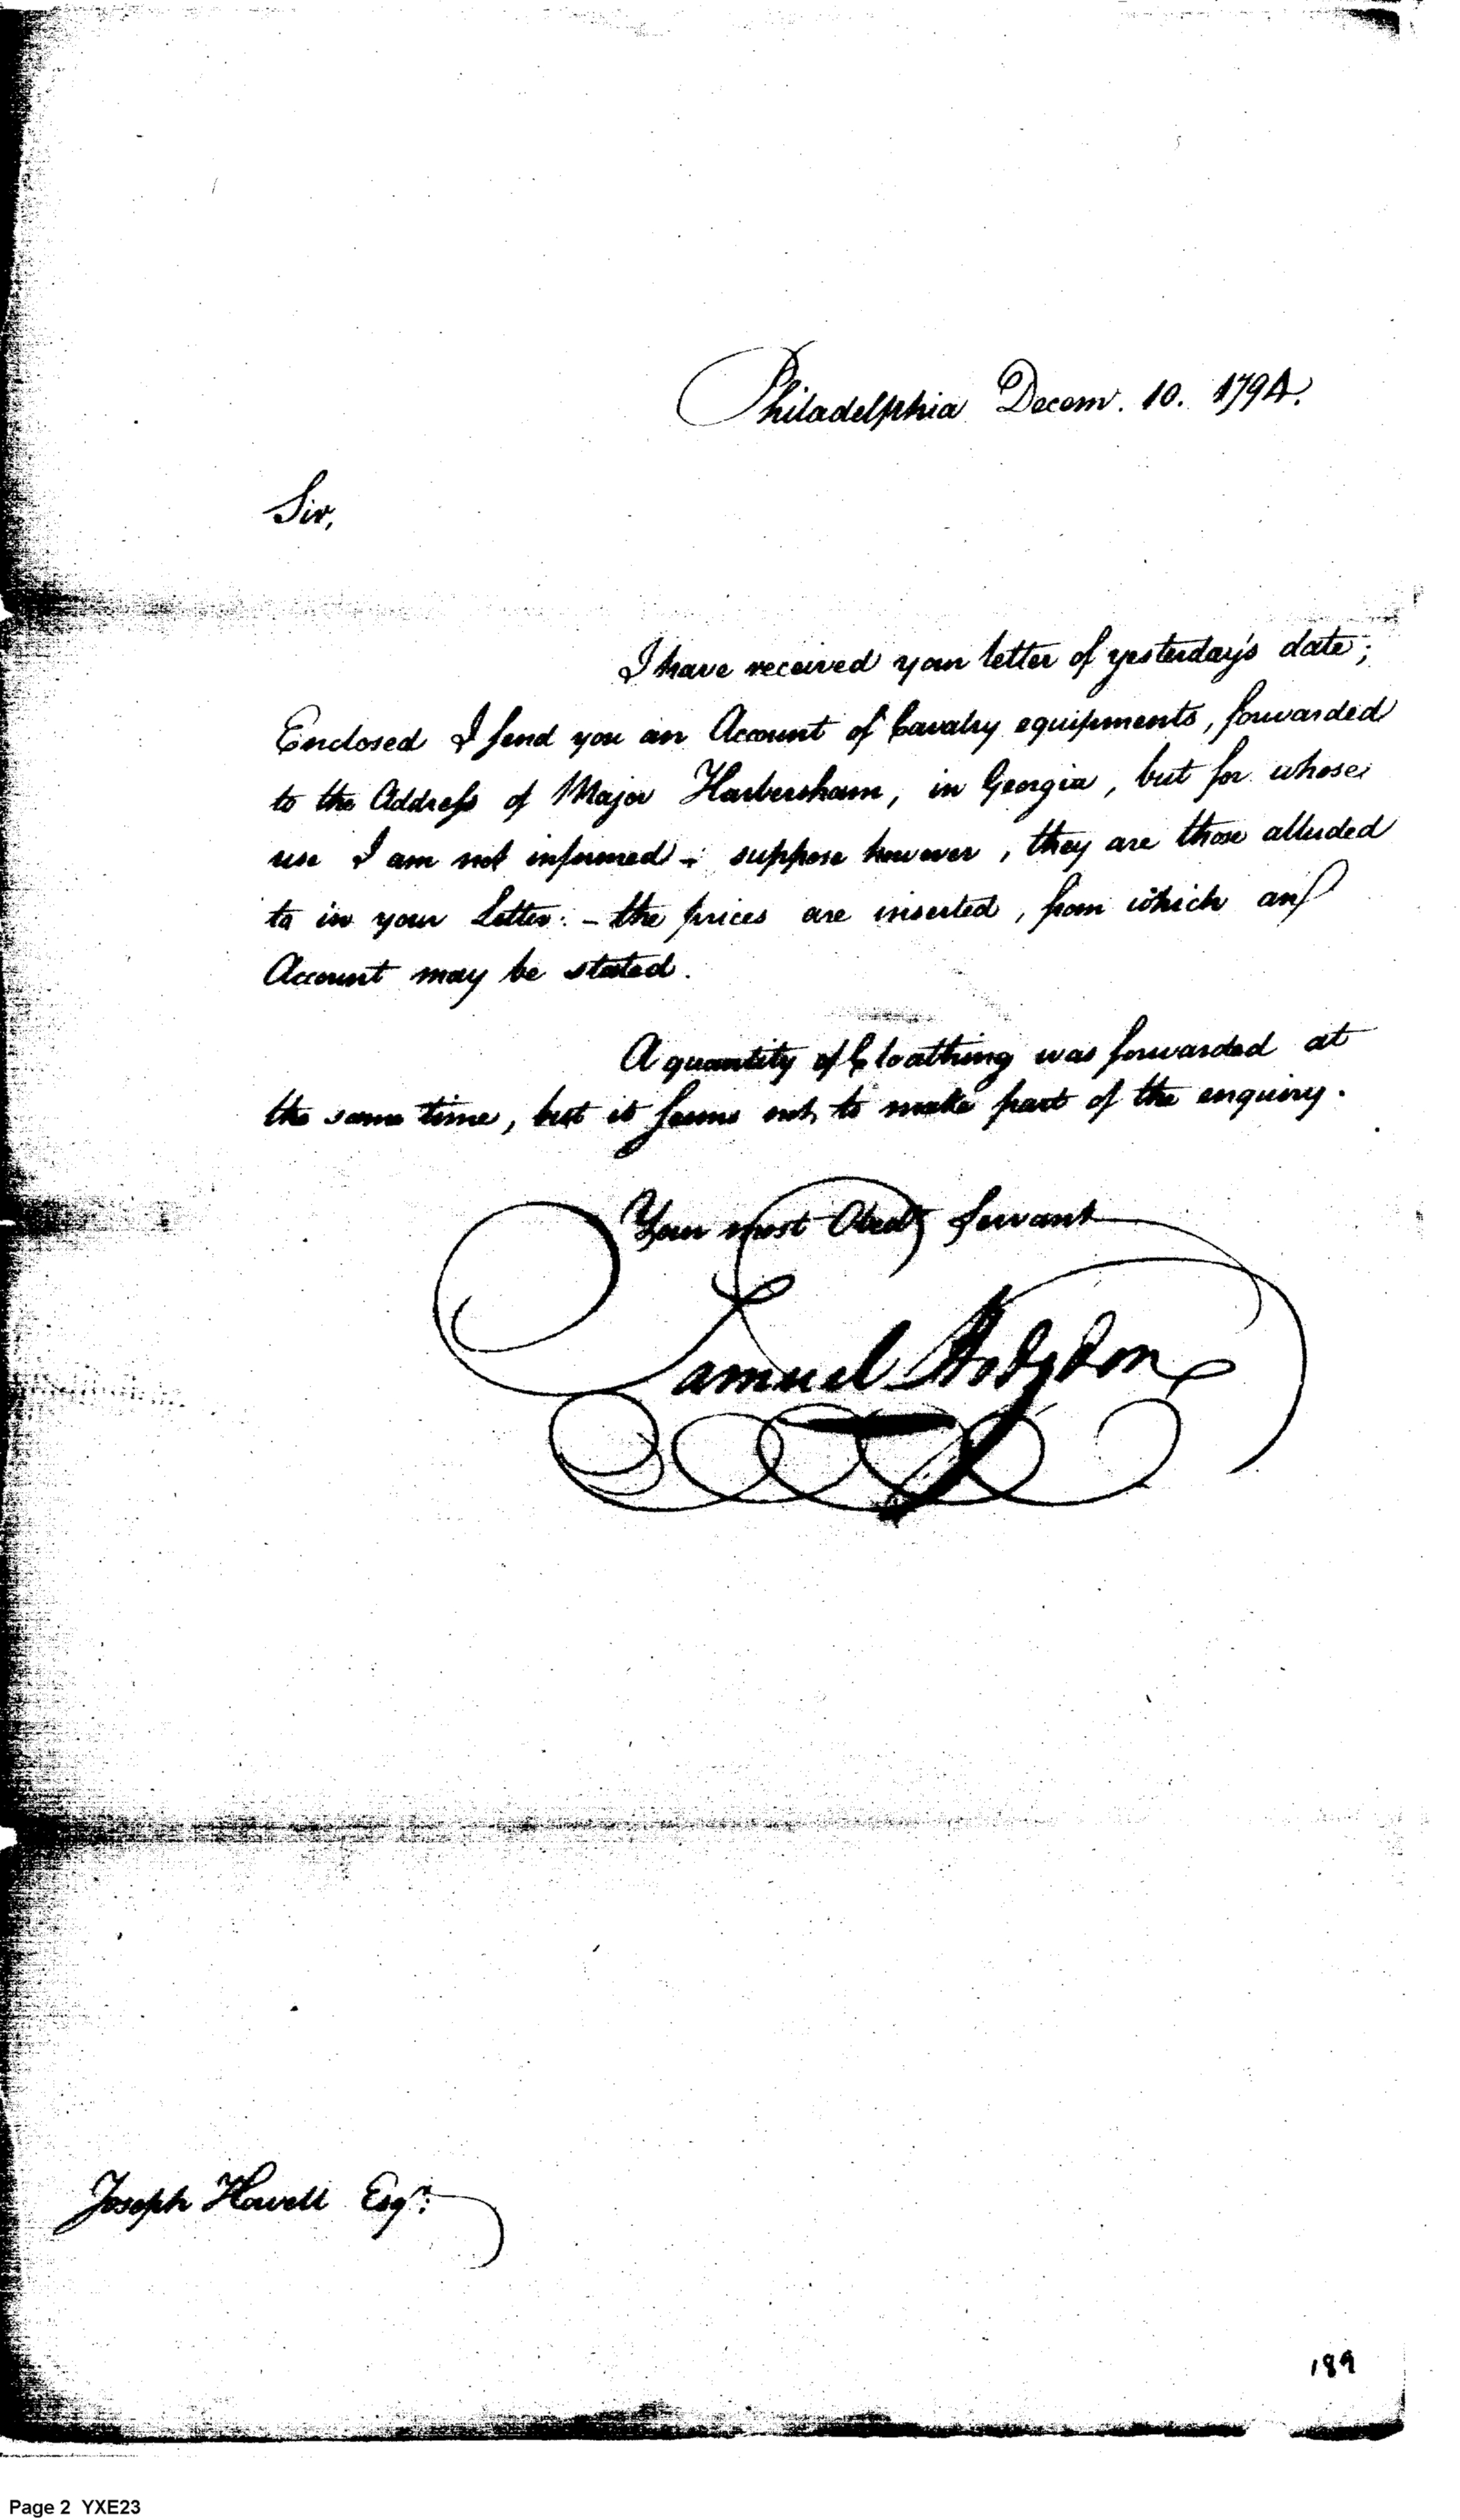 Philadelphia Decem. 10. 1794.
Sir,
I have received your letter of yesterday's date;
Enclosed I send you an Account of Cavalry equipments, forwarded
to the Address of Major Harbersham, in Georgia, but for whose
use I am not informed - suppose however, they are those alluded
to in your Letter: - the prices are inserted, from which an
Account may be stated.
A quantity of Cloathing was forwarded at
the same time, but it seems not, to make part of the enquiry.
Your most Obedt Servant
Samuel Hodgdon
Joseph Howell Esqr:
189
Page 2 YXE23